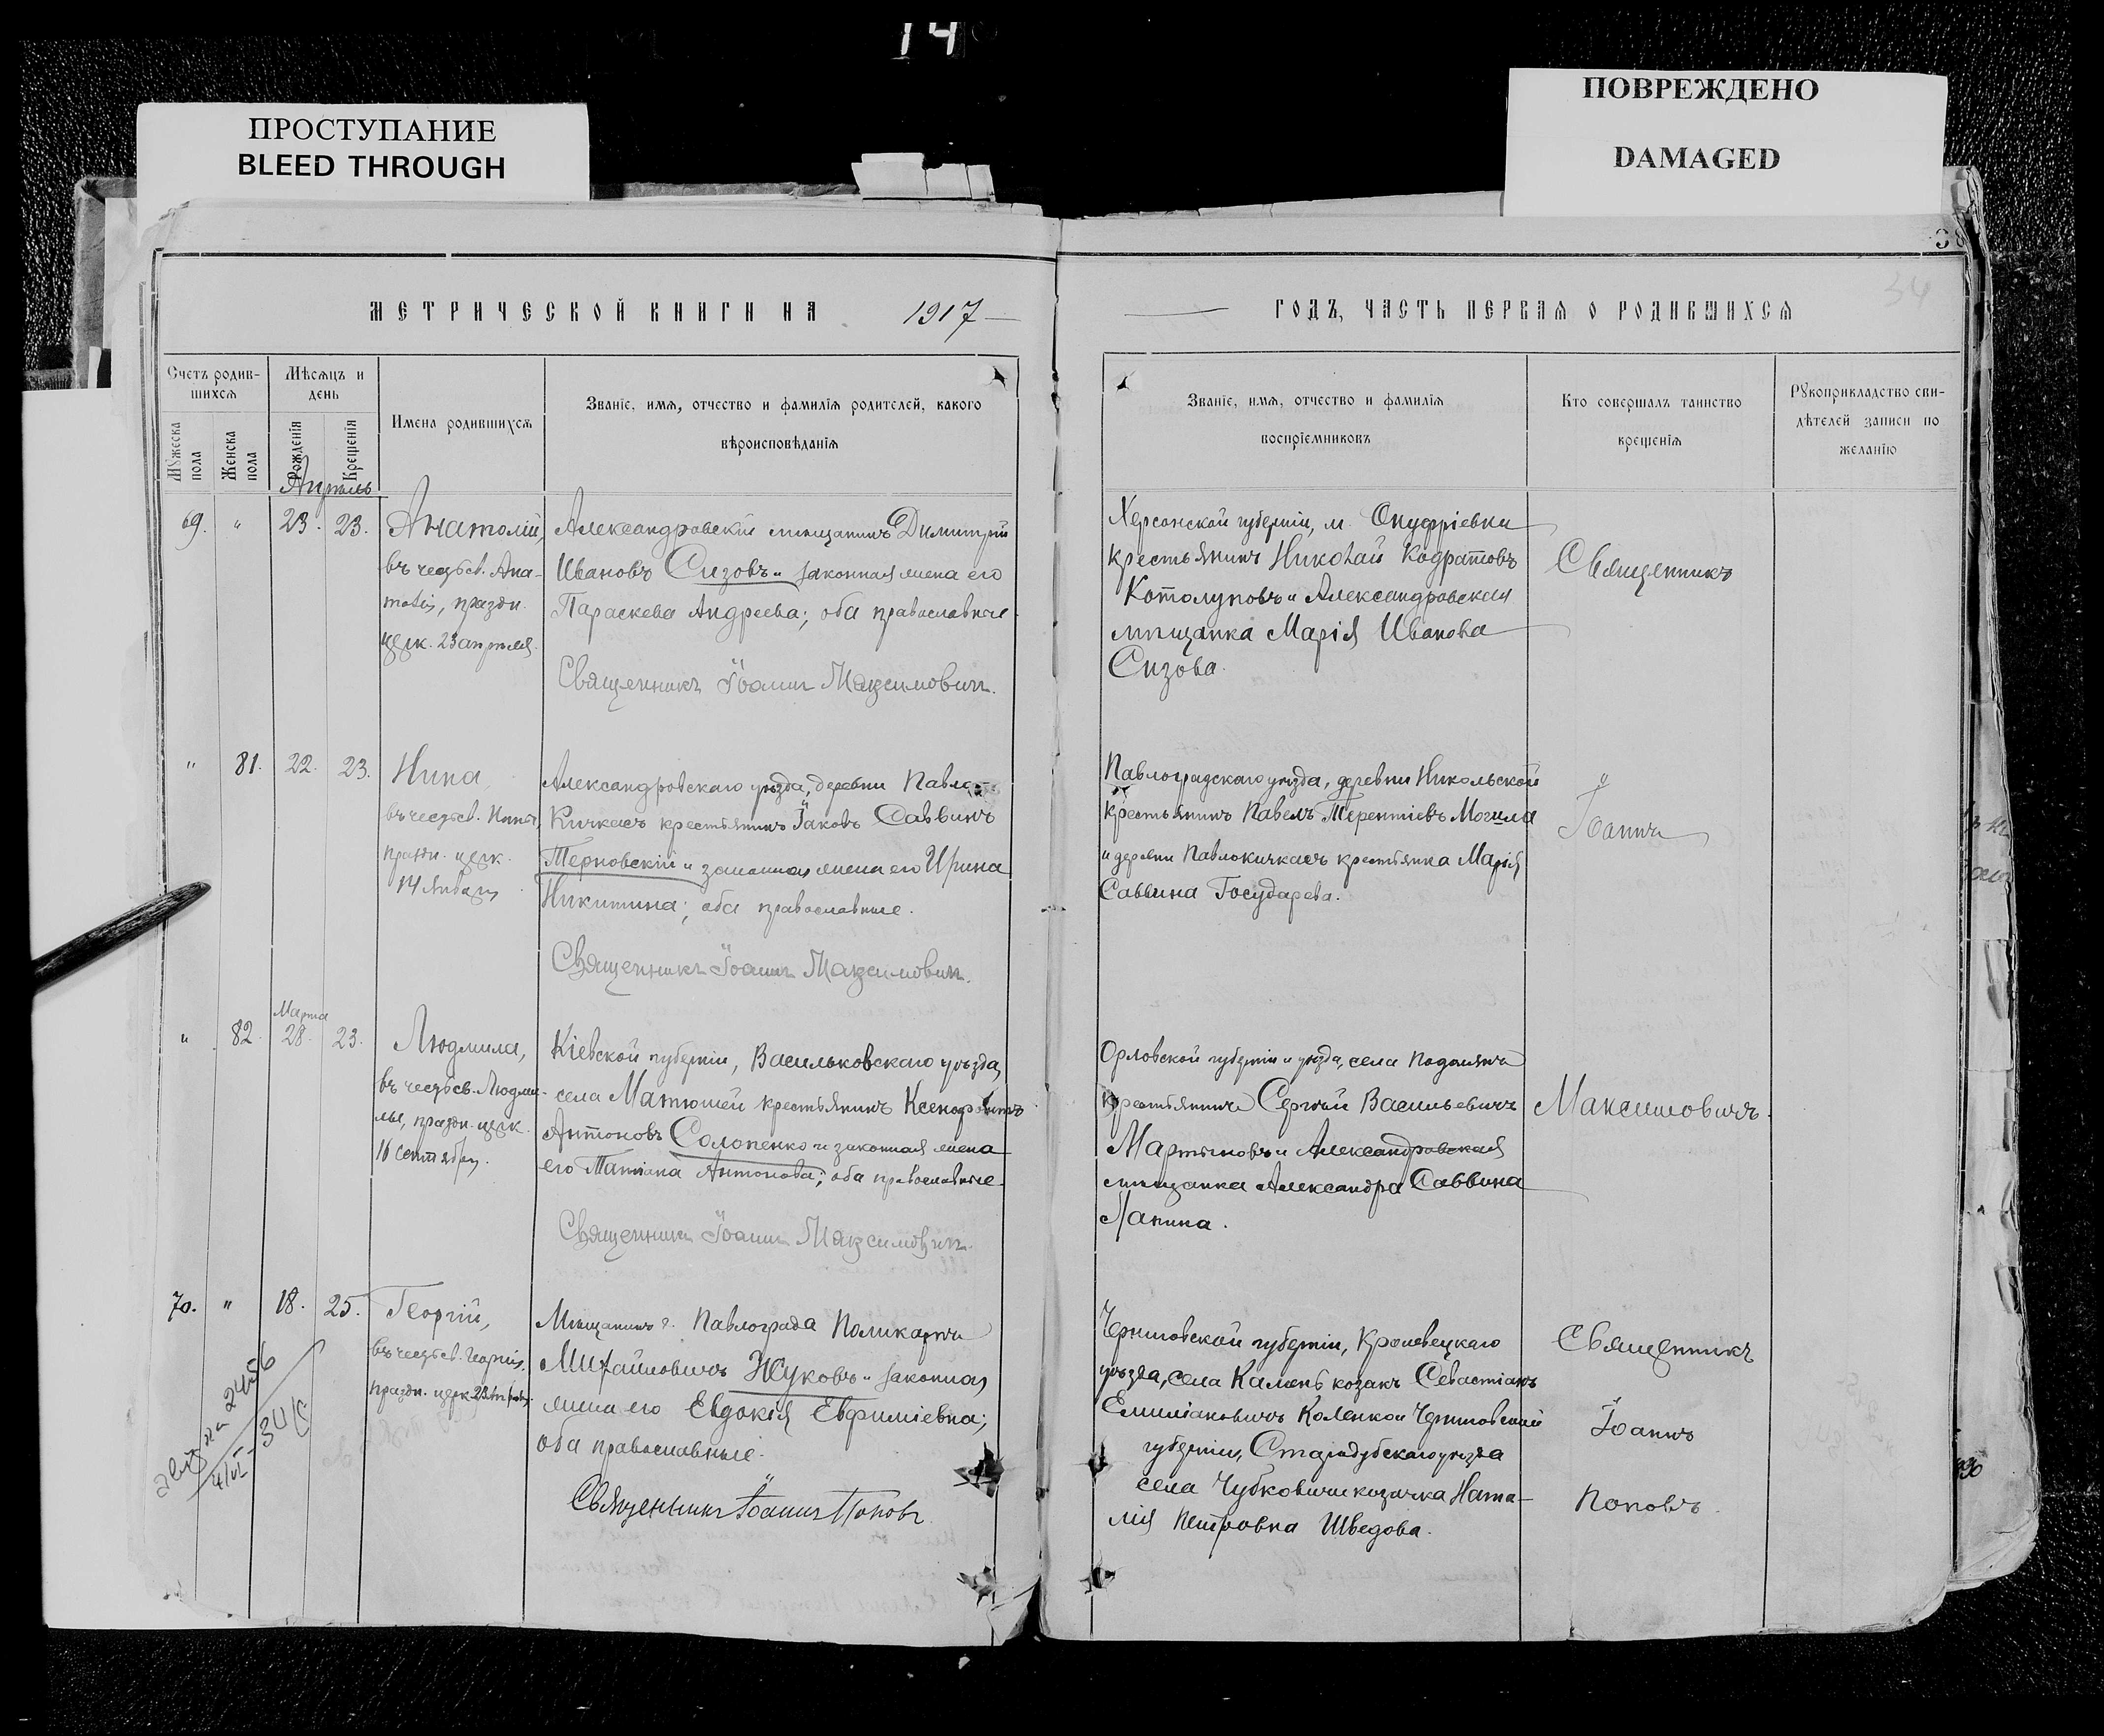 14
ПРОСТУПАНИЕ
BLEED THROUGH
ПОВРЕЖДЕНО
DAMAGED
34
МЕТРИЧЕСКОЙ КНИГИ НА 1917
ГОДЪ, ЧАСТЬ ПЕРВАЯ О РОДИВШИХСЯ
Счетъ родив-
шихся
Мѣсяцъ и
день
Имена родившихся
Званіе, имя, отчество и фамилія родителей, какого
вѣроисповѣданія
Мужеска
пола
Женска
пола
Рожденія
Крещенія
Званіе, имя, отчество и фамилія
воспріемниковъ
Кто совершалъ таинство
крещенія
Рукоприкладство сви-
дѣтелей записи по
желанію
Апрѣль
69. " 23. 23.
Анатолій,
въ честь св. Ана-
толія, праздн.
церк. 23 апрѣля.
Александровскій мѣщанинъ Димитрій
Ивановъ Сизовъ и законная жена его
Параскева Андреева; оба православные.
Священникъ Іоаннъ Максимовичъ.
Херсонской губерніи, м. Онуфріевки
крестьянинъ Николай Кодратовъ
Котолуповъ и Александровская
мѣщанка Марія Иванова
Сизова.
Священникъ
" 81. 22. 23.
Нина,
въ честь св. Нины,
праздн. церк.
14 января
Александровскаго уѣзда, деревни Павло-
Кичкасъ крестьянинъ Іаковъ Саввинъ
Терновскій и законная жена его Ирина
Никитина; оба православные.
Священникъ Іоаннъ Максимовичъ.
Павлоградскаго уѣзда, деревни Никольской
крестьянинъ Павелъ Терентіевъ Могила
и деревни Павлокичкасъ крестьянка Марія
Саввина Государева.
Іоаннъ
" 82. Марта 28. 23.
Людмила,
въ честь св. Людми-
лы, праздн. церк.
16 сентября.
Кіевской губерніи, Васильковскаго уѣзда,
села Матюшей крестьянинъ Ксенофонтъ
Антоновъ Солопенко и законная жена
его Татіана Антонова; оба православные.
Священникъ Іоаннъ Максимовичъ.
Орловской губерніи и уѣзда, села Подолянъ
крестьянинъ Сергѣй Васильевичъ
Мартыновъ и Александровская
мѣщанка Александра Саввина
Лапина.
Максимовичъ.
70. " 18. 25.
Георгій,
въ честь св. Георгія,
праздн. церк. 23 Апрѣля.
Мѣщанинъ г. Павлограда Поликарпъ
Михайловичъ Жуковъ и законная
жена его Евдокія Евфиміевна;
оба православные.
Священникъ Іоаннъ Поповъ.
Черниговской губерніи, Кролевецкаго
уѣзда, села Камень козакъ Севастіанъ
Емиліановичъ Коленко и Черниговской
губерніи, Стародубскаго уѣзда
села Чубковичи козачка Ната-
лія Петровна Шведова.
Священникъ
Іоаннъ
Поповъ.